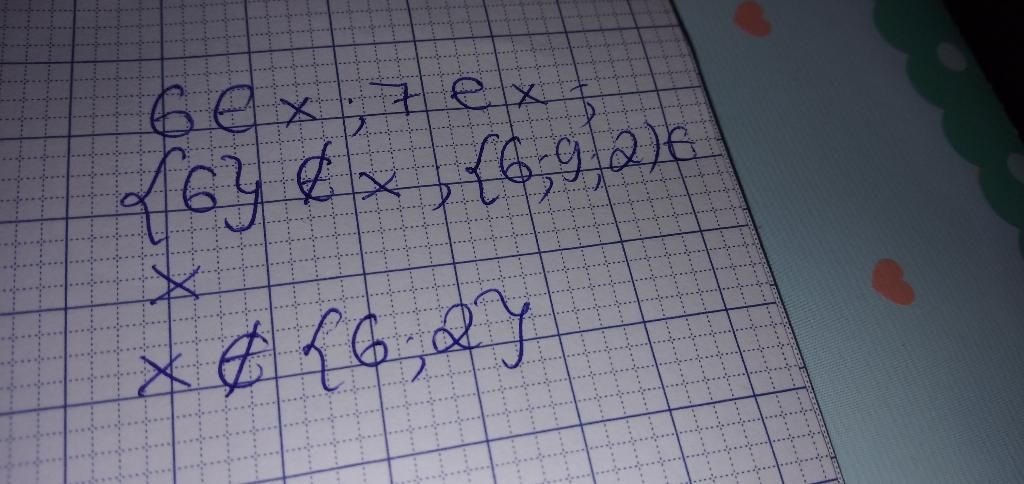 6 ∈ x ; 7 ∈ x ;
{6} ∉ x , {6;9,2) ∈
x
x ∉ {6;2}